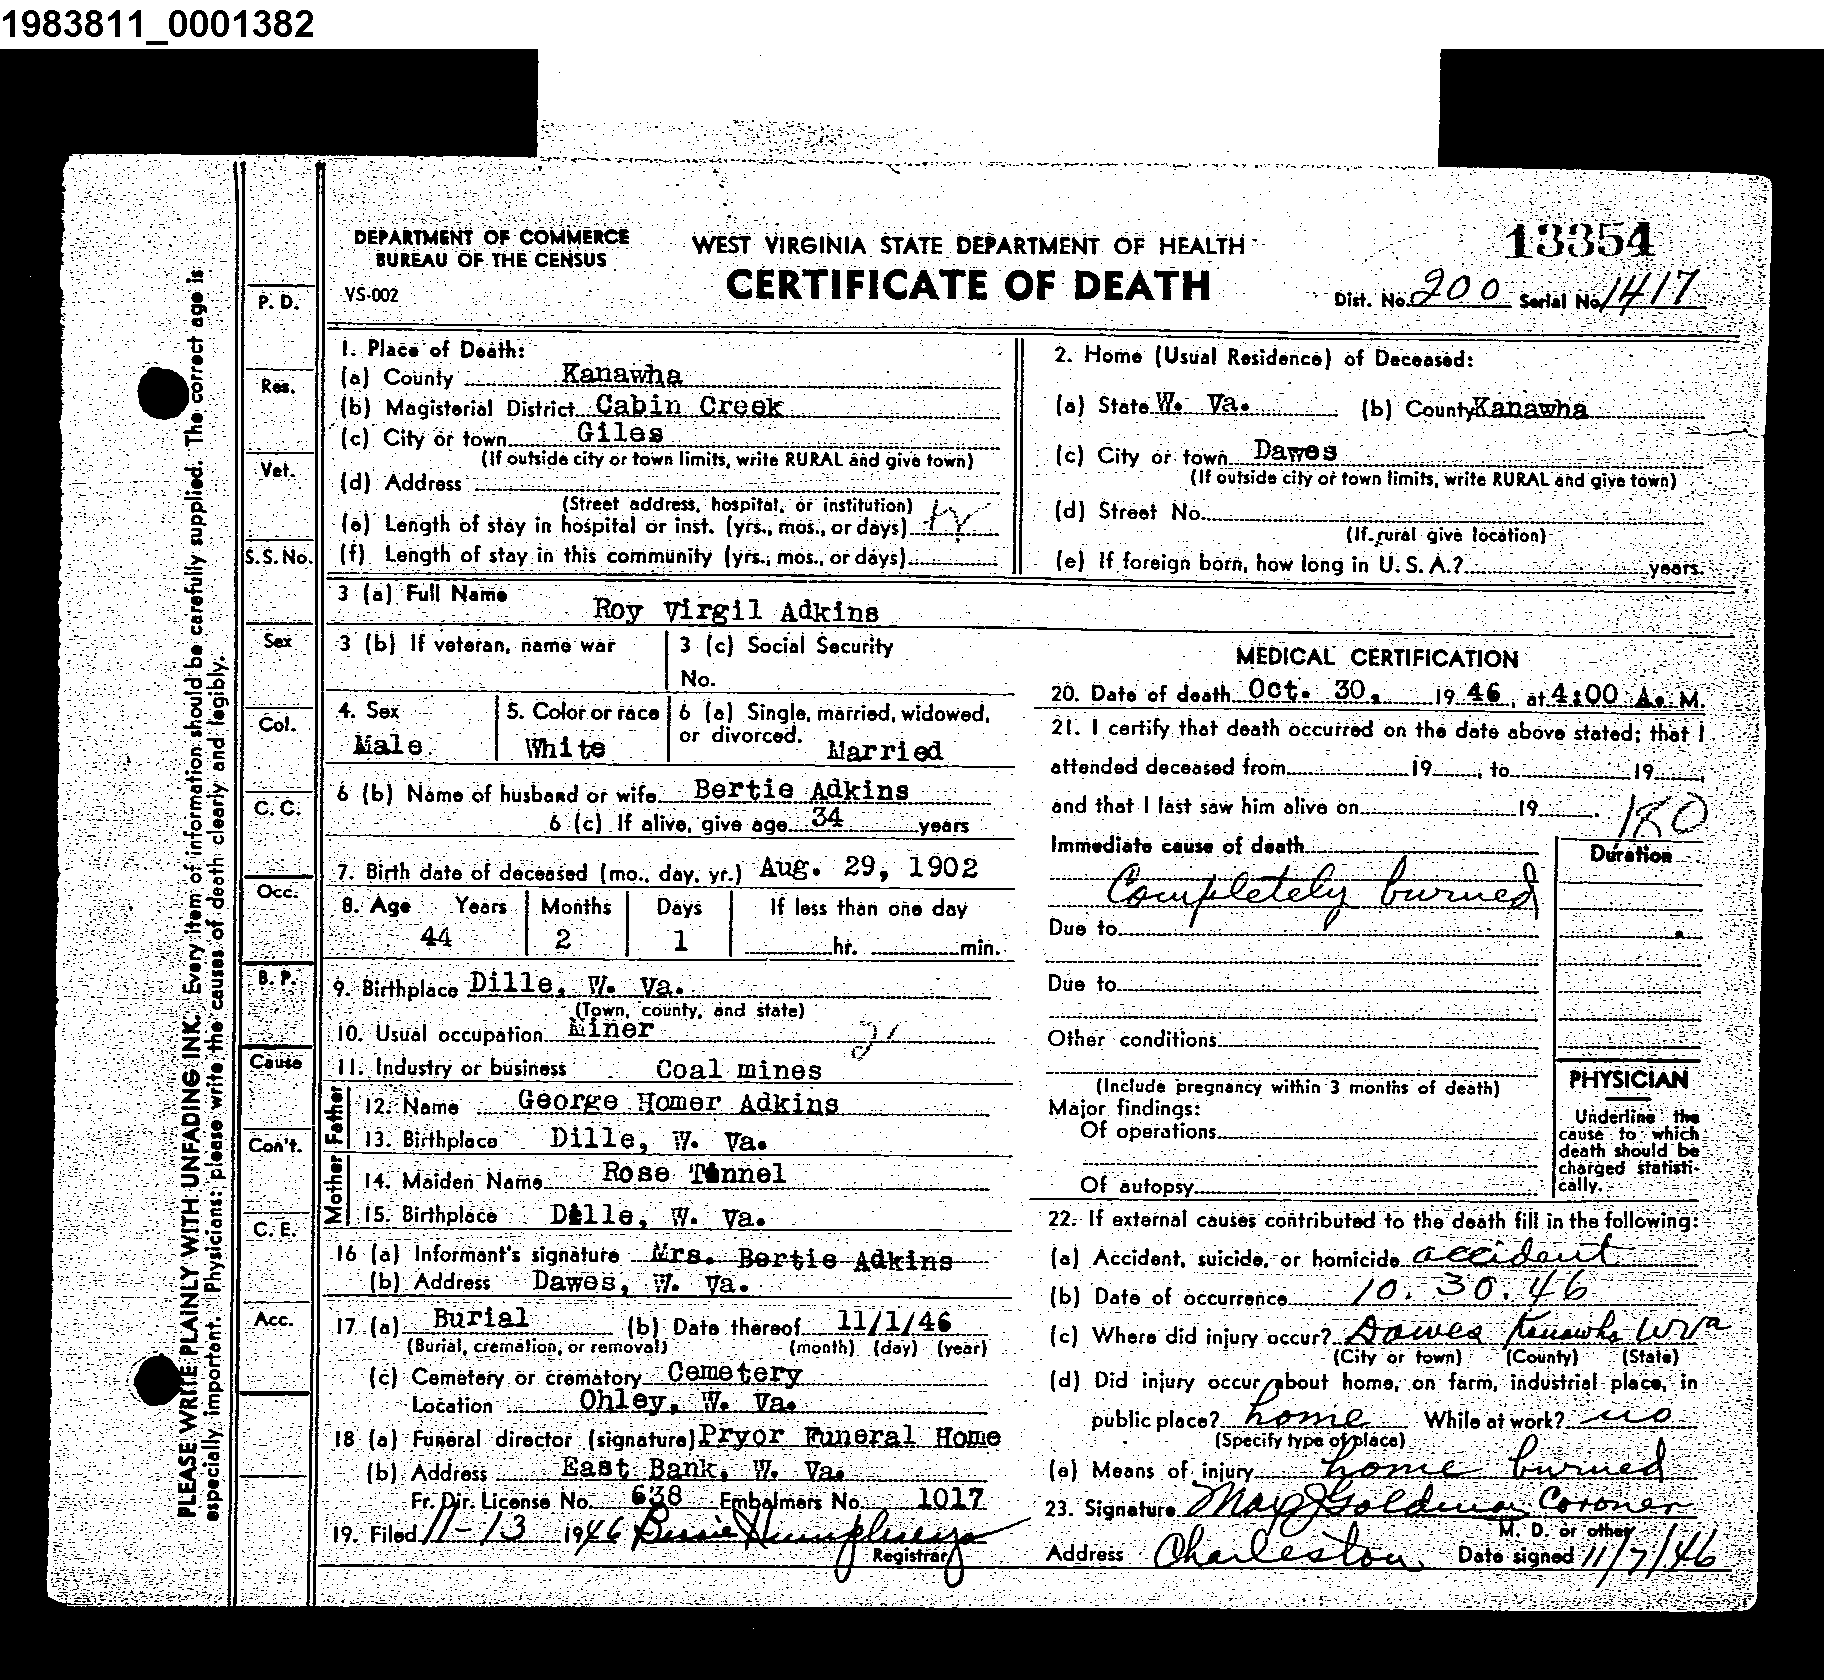 1983811_0001382
DEPARTMENT OF COMMERCE
BUREAU OF THE CENSUS
VS-002
WEST VIRGINIA STATE DEPARTMENT OF HEALTH
CERTIFICATE OF DEATH
13354
Dist. No. 200 Serial No. 1417
PLEASE WRITE PLAINLY WITH UNFADING INK. Every item of information should be carefully supplied. The correct age is
especially important. Physicians: please write the causes of death clearly and legibly.
P. D.
Res.
Vet.
S. S. No.
Sex
Col.
C. C.
Occ.
B. P.
Cause
Con't.
C. E.
Acc.
1. Place of Death:
(a) County Kanawha
(b) Magisterial District Cabin Creek
(c) City or town Giles
(If outside city or town limits, write RURAL and give town)
(d) Address
(Street address, hospital, or institution)
(e) Length of stay in hospital or inst. (yrs., mos., or days)
(f) Length of stay in this community (yrs., mos., or days)
2. Home (Usual Residence) of Deceased:
(a) State W. Va. (b) County Kanawha
(c) City or town Dawes
(If outside city or town limits, write RURAL and give town)
(d) Street No.
(If rural give location)
(e) If foreign born, how long in U. S. A.? years
3 (a) Full Name Roy Virgil Adkins
3 (b) If veteran, name war
3 (c) Social Security
No.
4. Sex
Male
5. Color or race
White
6 (a) Single, married, widowed,
or divorced. Married
6 (b) Name of husband or wife Bertie Adkins
6 (c) If alive, give age 34 years
7. Birth date of deceased (mo., day, yr.) Aug. 29, 1902
8. Age Years Months Days If less than one day
44 2 1 hr. min.
9. Birthplace Dille, W. Va.
(Town, county, and state)
10. Usual occupation Miner
11. Industry or business Coal mines
Father
12. Name George Homer Adkins
13. Birthplace Dille, W. Va.
Mother
14. Maiden Name Rose Tinnel
15. Birthplace Dille, W. Va.
16 (a) Informant's signature Mrs. Bertie Adkins
(b) Address Dawes, W. Va.
17 (a) Burial (b) Date thereof 11/1/46
(Burial, cremation, or removal) (month) (day) (year)
(c) Cemetery or crematory Cemetery
Location Ohley, W. Va.
18 (a) Funeral director (signature) Pryor Funeral Home
(b) Address East Bank, W. Va.
Fr. Dir. License No. 638 Embalmers No. 1017
19. Filed 11-13 1946 Bessie Humphreys
Registrar
MEDICAL CERTIFICATION
20. Date of death Oct. 30, 1946, at 4:00 A. M.
21. I certify that death occurred on the date above stated; that I
attended deceased from 19 , to 19 ,
and that I last saw him alive on 19 .
180
Immediate cause of death
Duration
Completely burned
Due to
Due to
Other conditions
(Include pregnancy within 3 months of death)
Major findings:
Of operations
Of autopsy
PHYSICIAN
Underline the
cause to which
death should be
charged statisti-
cally.
22. If external causes contributed to the death fill in the following:
(a) Accident, suicide, or homicide accident
(b) Date of occurrence 10.30.46
(c) Where did injury occur? Dawes Kanawha WVa
(City or town) (County) (State)
(d) Did injury occur about home, on farm, industrial place, in
public place? home While at work? no
(Specify type of place)
(e) Means of injury home burned
23. Signature Goldman Coroner
M. D. or other
Address Charleston Date signed 11/7/46